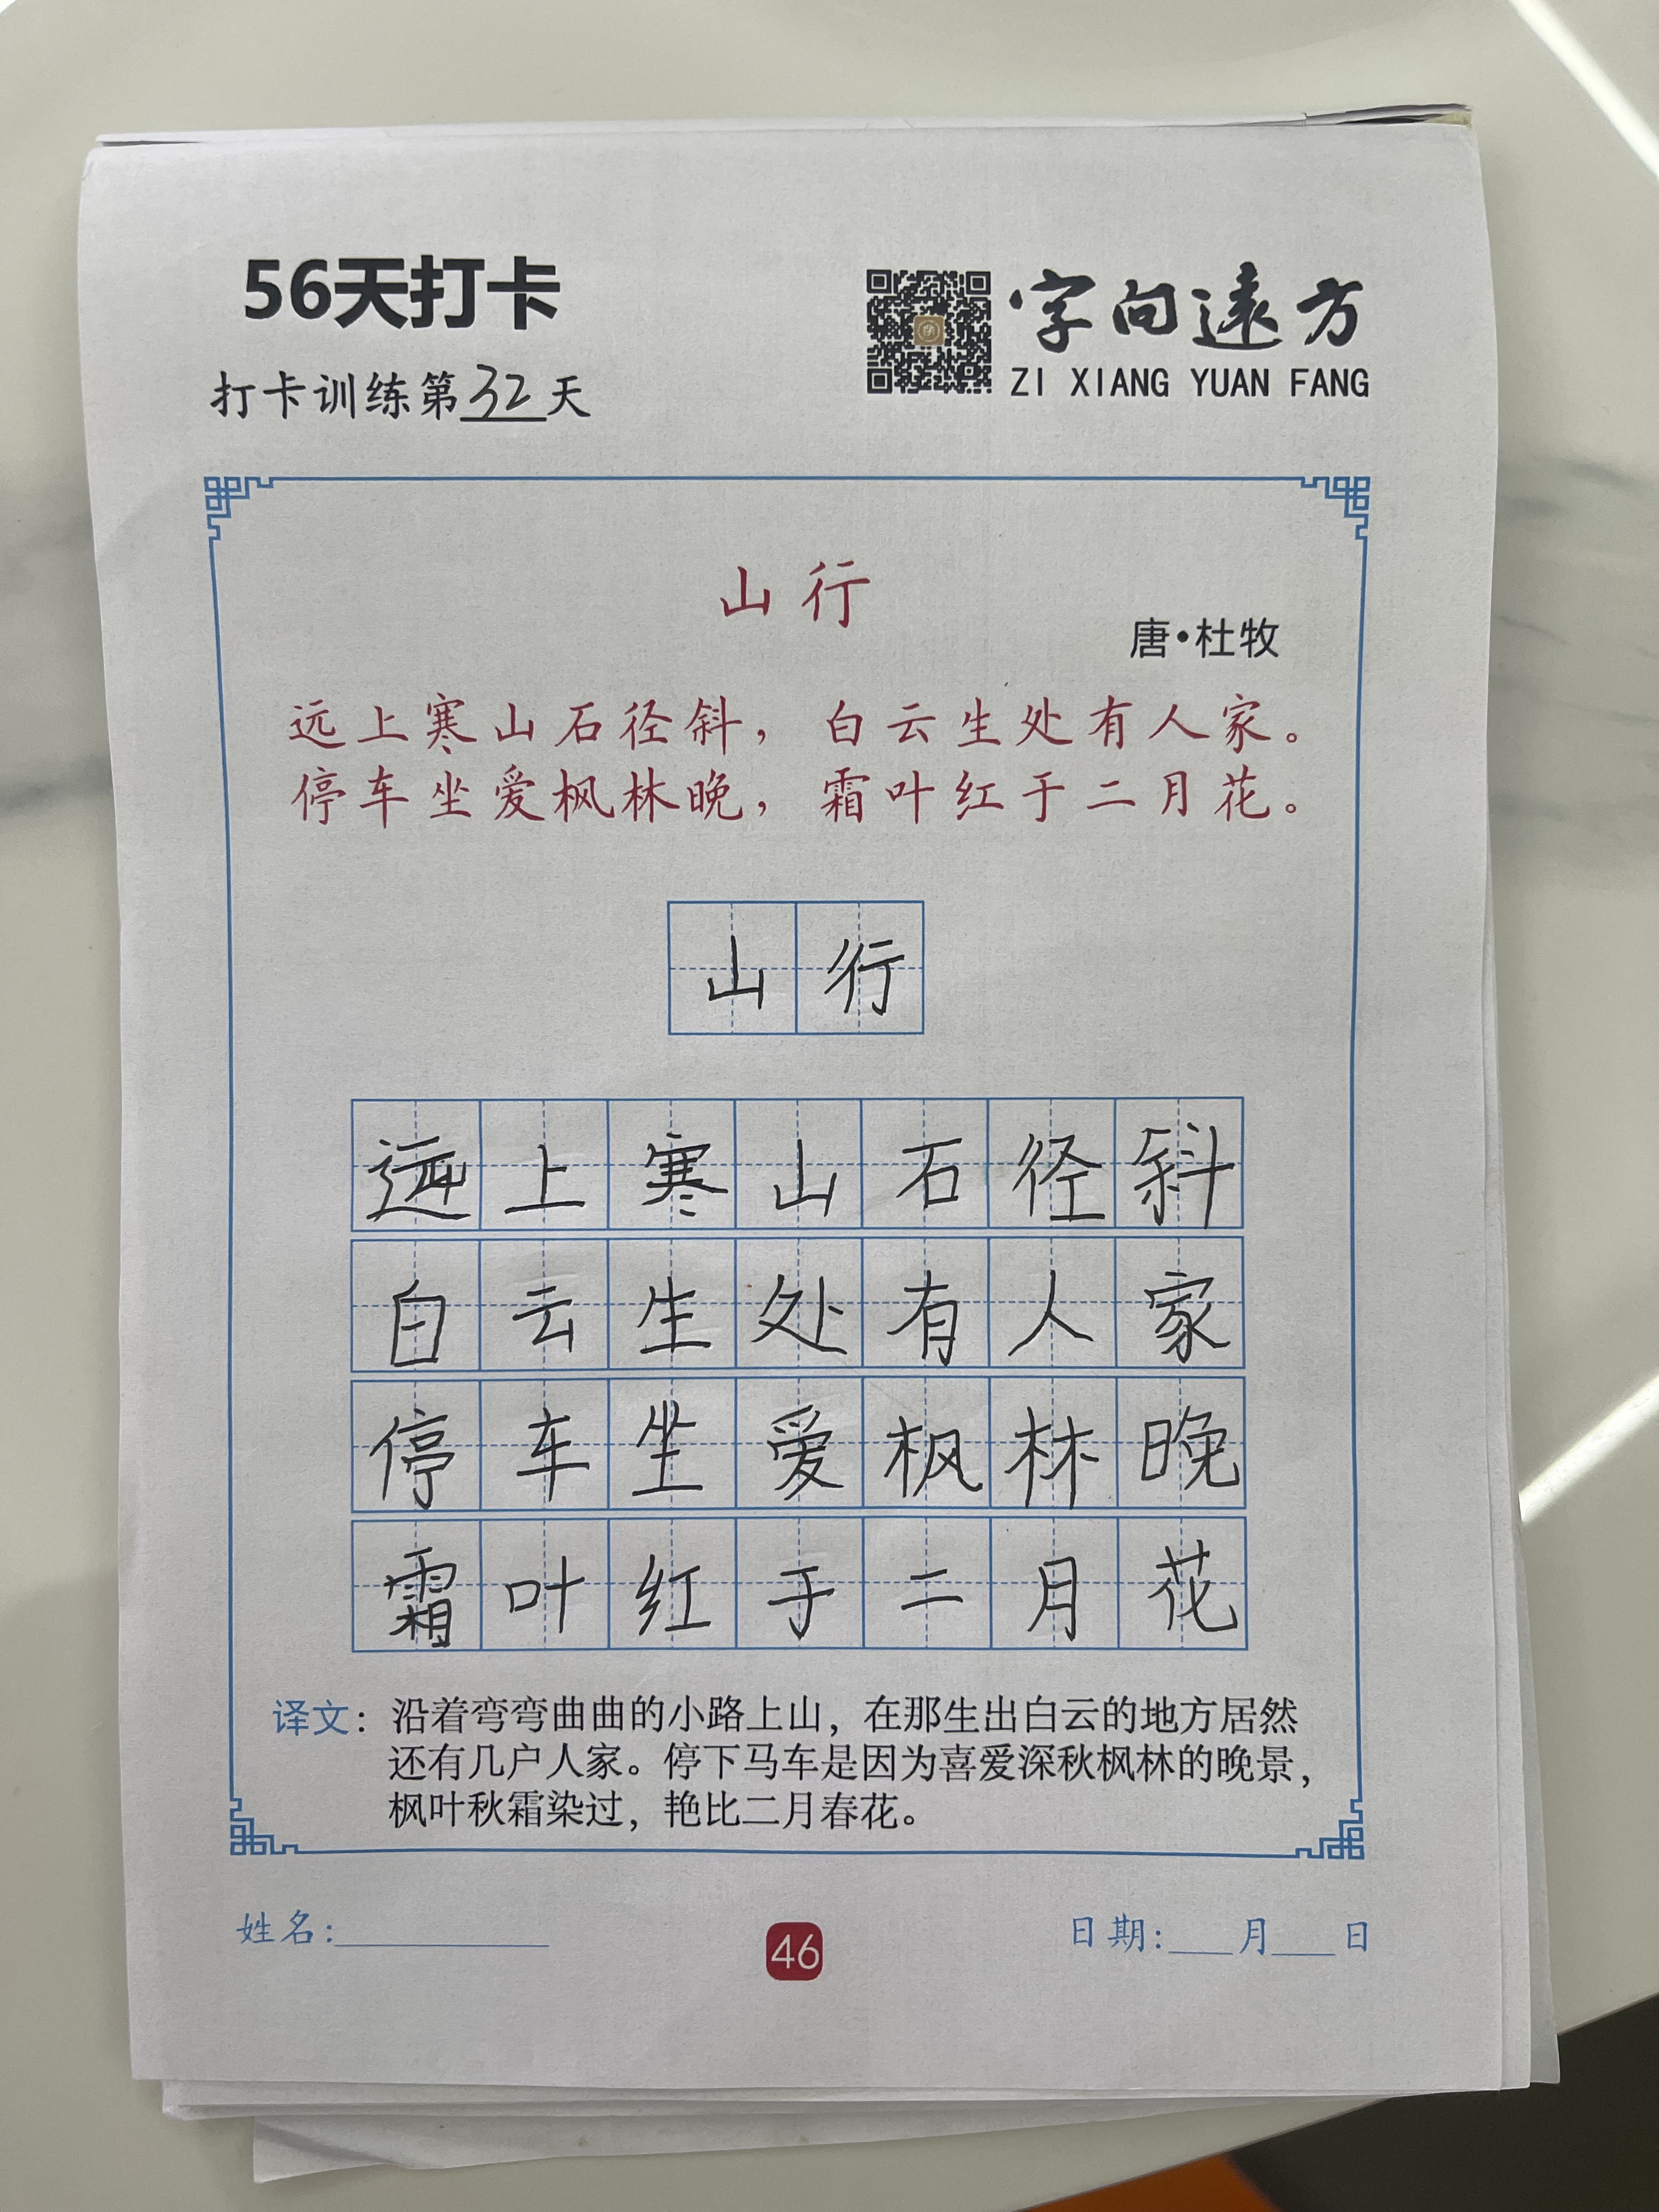 56天打卡
字向遠方
ZI XIANG YUAN FANG
打卡训练第32天
山行
唐·杜牧
远上寒山石径斜，白云生处有人家。
停车坐爱枫林晚，霜叶红于二月花。
山行
远上寒山石径斜
白云生处有人家
停车坐爱枫林晚
霜叶红于二月花
译文：沿着弯弯曲曲的小路上山，在那生出白云的地方居然
还有几户人家。停下马车是因为喜爱深秋枫林的晚景，
枫叶秋霜染过，艳比二月春花。
姓名：
46
日期：___月___日